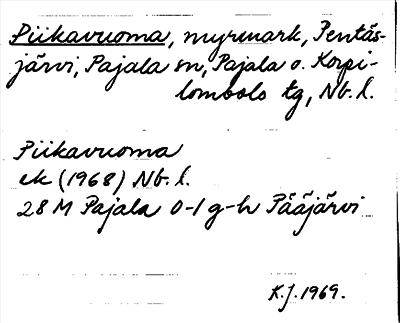 Piikavuoma, myrmark, Pentäs-
järvi, Pajala sn, Pajala o. Korpi-
lombolo tg, Nb. l.
Piikavuoma
ek (1968) Nb. l.
28 M Pajala 0-1 g-h Pääjärvi
K.J. 1969.